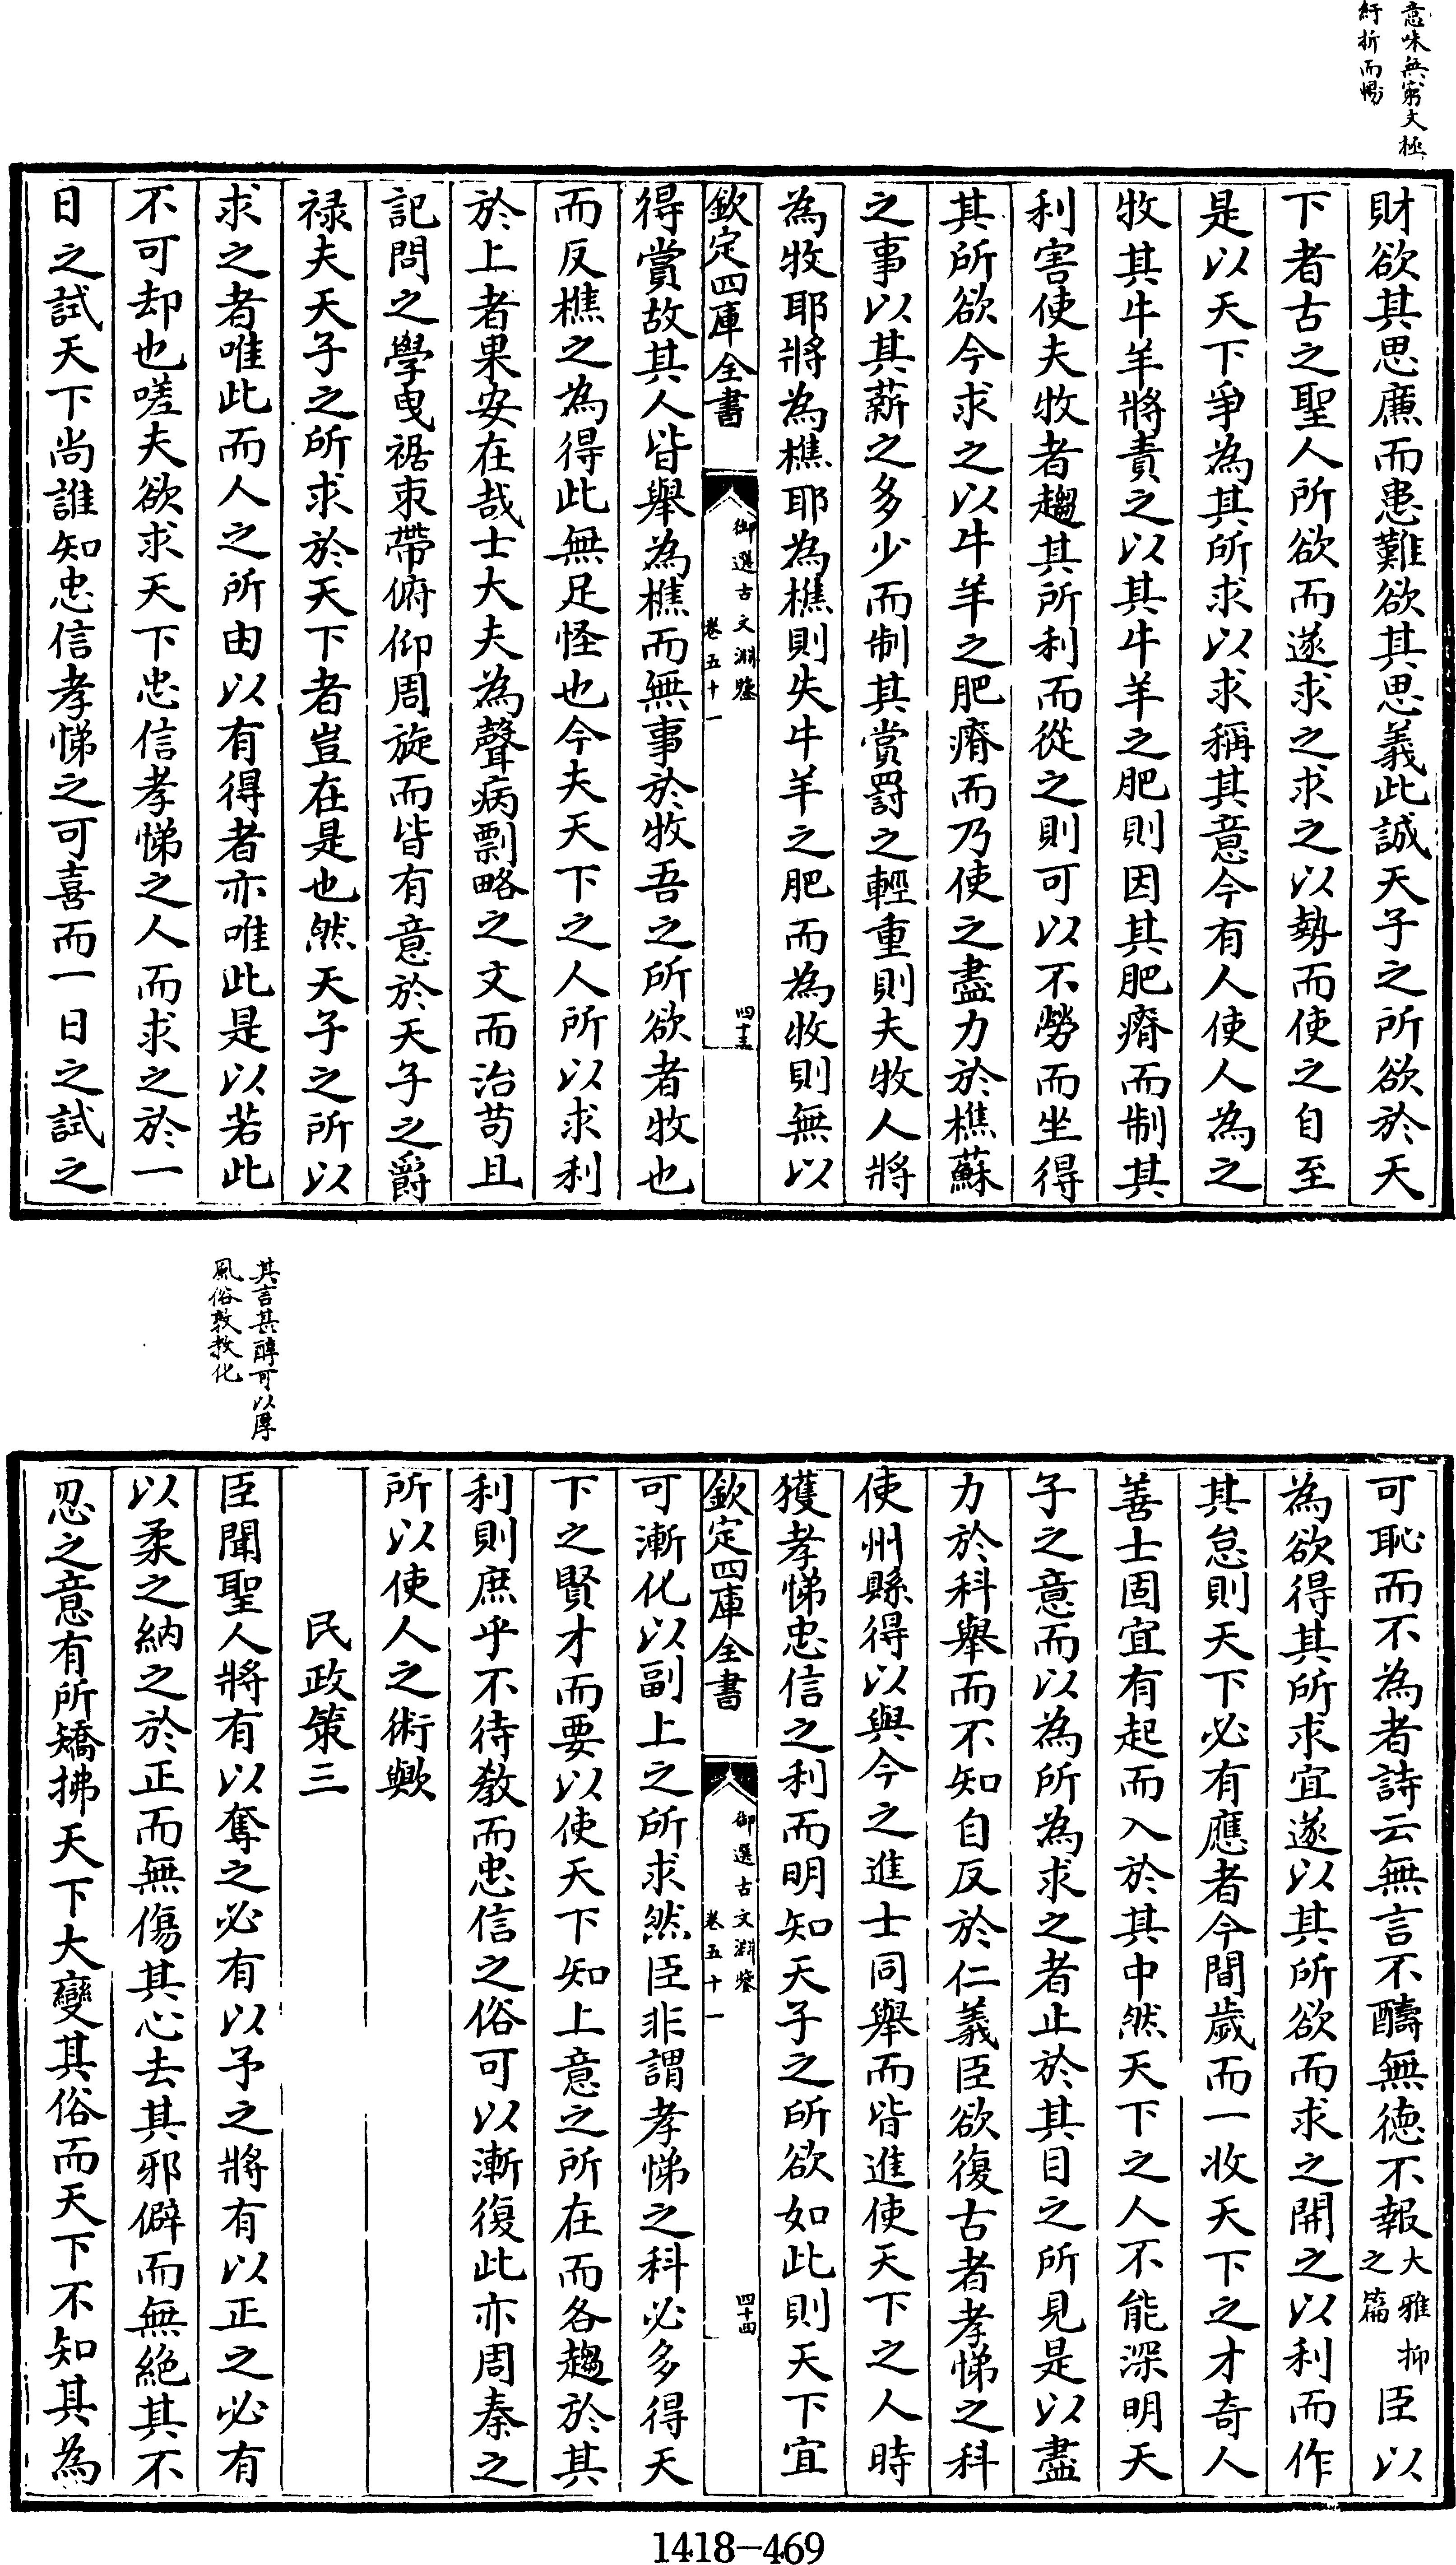 意味無窮文極
紆折而暢
財欲其思亷而患難欲其思義此誠天子之所欲於天
下者古之聖人所欲而遂求之求之以勢而使之自至
是以天下爭為其所求以求稱其意今有人使人為之
牧其牛羊將責之以其牛羊之肥則因其肥瘠而制其
利害使夫牧者趨其所利而從之則可以不勞而坐得
其所欲今求之以牛羊之肥瘠而乃使之盡力於樵蘇
之事以其薪之多少而制其賞罰之輕重則夫牧人將
為牧耶將為樵耶為樵則失牛羊之肥而為牧則無以
欽定四庫全書
御選古文淵鑒
卷五十一
四十三
得賞故其人皆舉為樵而無事於牧吾之所欲者牧也
而反樵之為得此無足怪也今夫天下之人所以求利
於上者果安在哉士大夫為聲病剽略之文而治苟且
記問之學曳裾束帶俯仰周旋而皆有意於天子之爵
祿夫天子之所求於天下者豈在是也然天子之所以
求之者唯此而人之所由以有得者亦唯此是以若此
不可却也嗟夫欲求天下忠信孝悌之人而求之於一
日之試天下尚誰知忠信孝悌之可喜而一日之試之
其言甚醇可以厚
風俗敦教化
可恥而不為者詩云無言不醻無徳不報大雅抑之篇臣以
為欲得其所求宜遂以其所欲而求之開之以利而作
其怠則天下必有應者今間歲而一收天下之才奇人
善士固宜有起而入於其中然天下之人不能深明天
子之意而以為所為求之者止於其目之所見是以盡
力於科舉而不知自反於仁義臣欲復古者孝悌之科
使州縣得以與今之進士同舉而皆進使天下之人時
獲孝悌忠信之利而明知天子之所欲如此則天下宜
欽定四庫全書
御選古文淵鑒
卷五十一
四十四
可漸化以副上之所求然臣非謂孝悌之科必多得天
下之賢才而要以使天下知上意之所在而各趨於其
利則庶乎不待教而忠信之俗可以漸復此亦周秦之
所以使人之術歟
民政策三
臣聞聖人將有以奪之必有以予之將有以正之必有
以柔之納之於正而無傷其心去其邪僻而無絶其不
忍之意有所矯拂天下大變其俗而天下不知其為
1418-469